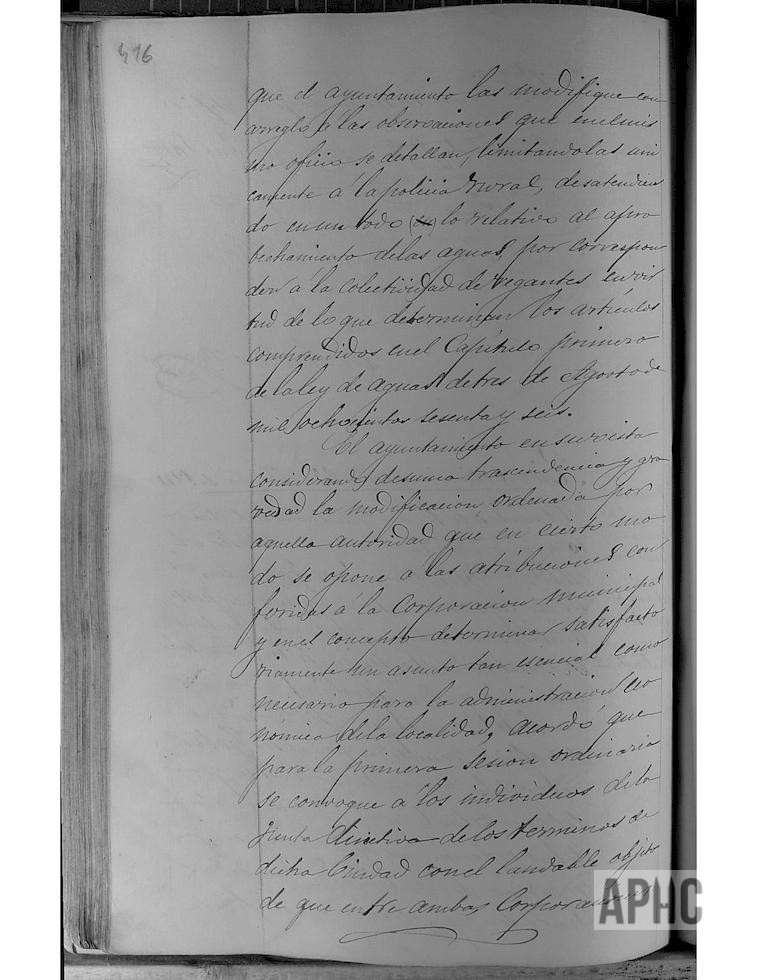 416
que el ayuntamiento las modifique con
arreglo a las observaciones que en el mis
mo oficio se detallan, limitandolas uni
camente a la policia rural, desatendien
do en un todo (en) lo relativo al apro
bechamiento de las aguas, por correspon
der á la colectividad de regantes en vir
tud de lo que determinan los artículos
comprendidos en el Capítulo primero
de la ley de aguas de tres de Agosto de
mil ochocientos sesenta y seis.
El ayuntamiento en su vista
considerando de suma trascendencia y gra
vedad la modificacion ordenada por
aquella autoridad que en cierto mo
do se opone a las atribuciones con
feridas á la Corporacion municipal
y en el concepto determinar satisfacto
riamente un asunto tan esencial como
necesario para la administracion eco
nómica de la localidad, acordó que
para la primera sesion ordinaria
se convoque á los individuos de la
Junta Directiva de los terminos de
dicha Ciudad con el laudable objeto
de que entre ambas Corporaciones
APHC